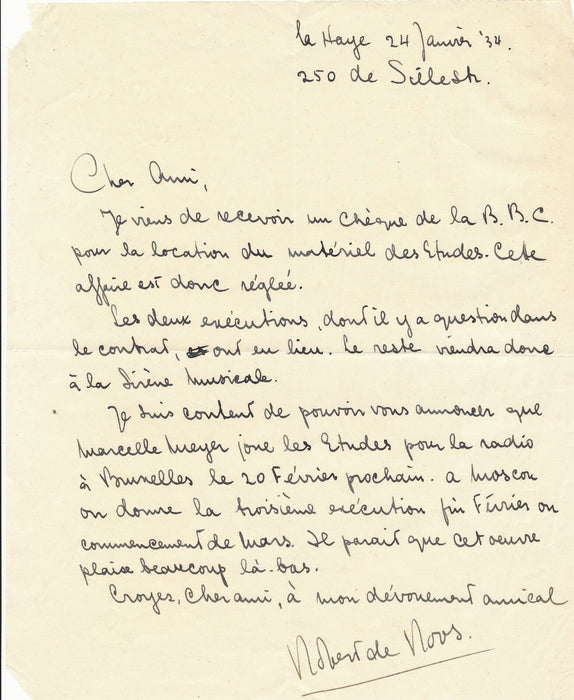 la Haye 24 Janvier '34.
250 de Sillestr.
Cher Ami,
Je viens de recevoir un chèque de la B.B.C.
pour la location du matériel des Etudes. Cette
affaire est donc réglée.
Les deux exécutions, dont il y a question dans
le contrat, ont eu lieu. Le reste viendra donc
à la Sirène Musicale.
Je suis content de pouvoir vous annoncer que
Marcelle Meyer joue les Etudes pour la radio
à Bruxelles le 20 Février prochain. a Moscou
on donne la troisième exécution fin Février ou
commencement de Mars. Il parait que cet oeuvre
plaix beaucoup là-bas.
Croyez, Cher ami, à mon dévouement amical
Robert de Roos.